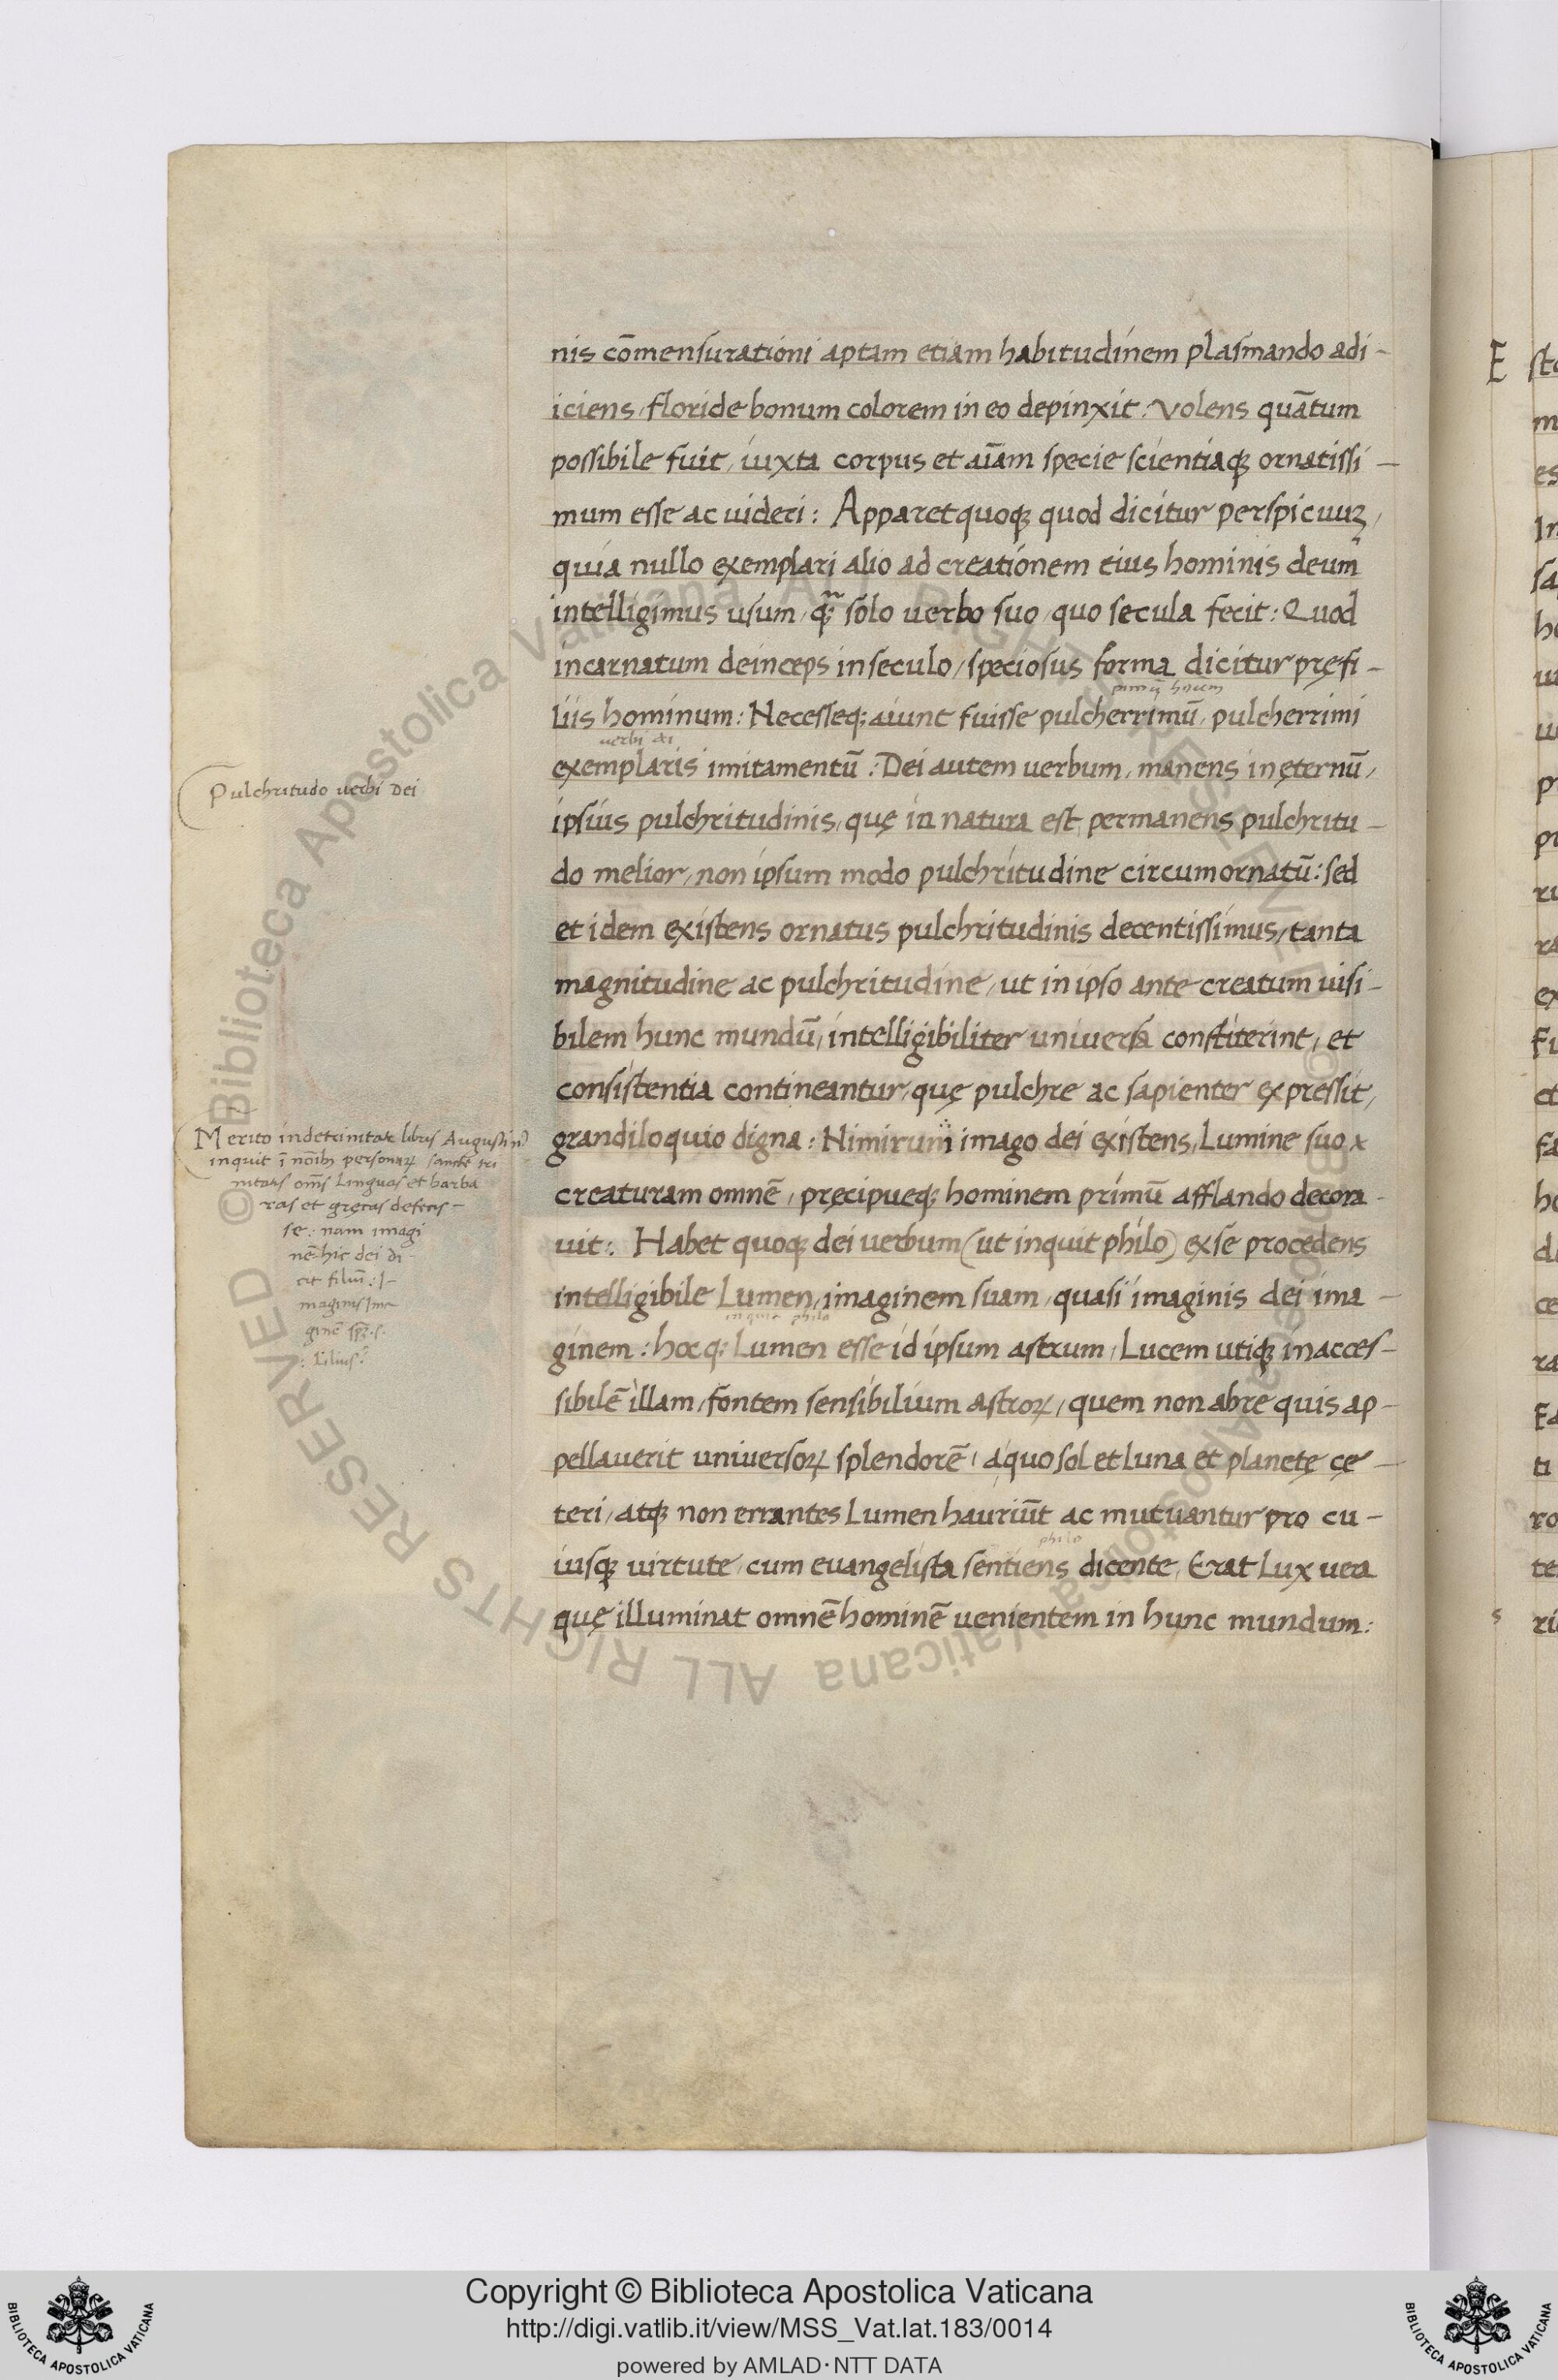 nis cõmensurationi aptam etiam habitudinem plasmando adi-
iciens, floride bonum colorem in eo depinxit: volens quãtum
possibile fuit, iuxta corpus et aĩam specie scientiaq; ornatissi-
mum esse ac uideri: Apparet quoq; quod dicitur perspicuuʒ,
quia nullo exemplari alio ad creationem eius hominis deum
intelligimus usum, q̃ solo uerbo suo, quo secula fecit: Quod
incarnatum deinceps in seculo, speciosus forma dicitur pręfi-
liis hominum: Necesseq; aiunt fuisse pulcherrimũ, pulcherrimi
uerbi dei
exemplaris imitamentũ: Dei autem uerbum, manens in ęternũ,
Pulchritudo uerbi Dei
ipsius pulchritudinis, quę in natura est permanens pulchritu-
do melior, non ipsum modo pulchritudine circumornatũ: sed
et idem existens ornatus pulchritudinis decentissimus, tanta
magnitudine ac pulchritudine, ut in ipso ante creatum uisi-
bilem hunc mundũ, intelligibiliter uniuersa constiterint, et
consistentia contineantur, quę pulchre ac sapienter expressit,
grandiloquio digna: Nimirum imago dei existens, Lumine suo
creaturam omnẽ, pręcipueq; hominem primũ afflando decora-
uit: Habet quoq; dei uerbum (ut inquit philo) ex se procedens
intelligibile Lumen, imaginem suam, quasi imaginis dei ima-
inquit philo
ginem: hocq; Lumen esse id ipsum astrum, Lucem utiq; inacces-
sibilẽ illam, fontem sensibilium astroꝝ, quem non abre quis ap-
pellauerit uniuersoꝝ splendorẽ, a quo sol et luna et planetę cę-
teri, atq; non errantes Lumen hauriũt ac mutuantur pro cu-
philo
iusq; uirtute, cum euangelista sentiens dicente, Erat Lux uera
quę illuminat omnẽ hominẽ uenientem in hunc mundum:
Merito in de trinitate libris Augustin
inquit ĩ personaꝝ sancte tri
nitatis om̃s Linguas et barba
ras et gręcas defecis-
se: nam imagi
nẽ hic dei di
cit filiũ: I-
maginis Ima
ginẽ
Copyright © Biblioteca Apostolica Vaticana
http://digi.vatlib.it/view/MSS_Vat.lat.183/0014
powered by AMLAD·NTT DATA
BIBLIOTECA APOSTOLICA VATICANA
BIBLIOTECA APOSTOLICA VATICANA
© Biblioteca Apostolica Vaticana ALL RIGHTS RESERVED
© Biblioteca Apostolica Vaticana ALL RIGHTS RESERVED